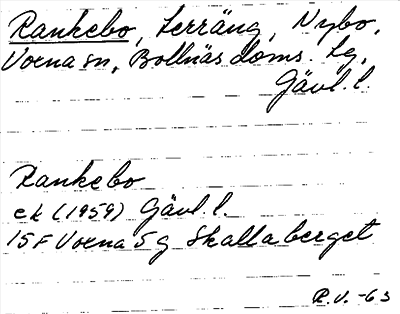 Rankebo, Terräng, Nybo,
Voxna sn, Bollnäs doms. lg,
Gävl. l.
Rankebo
ek (1959) Gävl. l.
15F Voxna 5g Skallaberget
R.V. -63